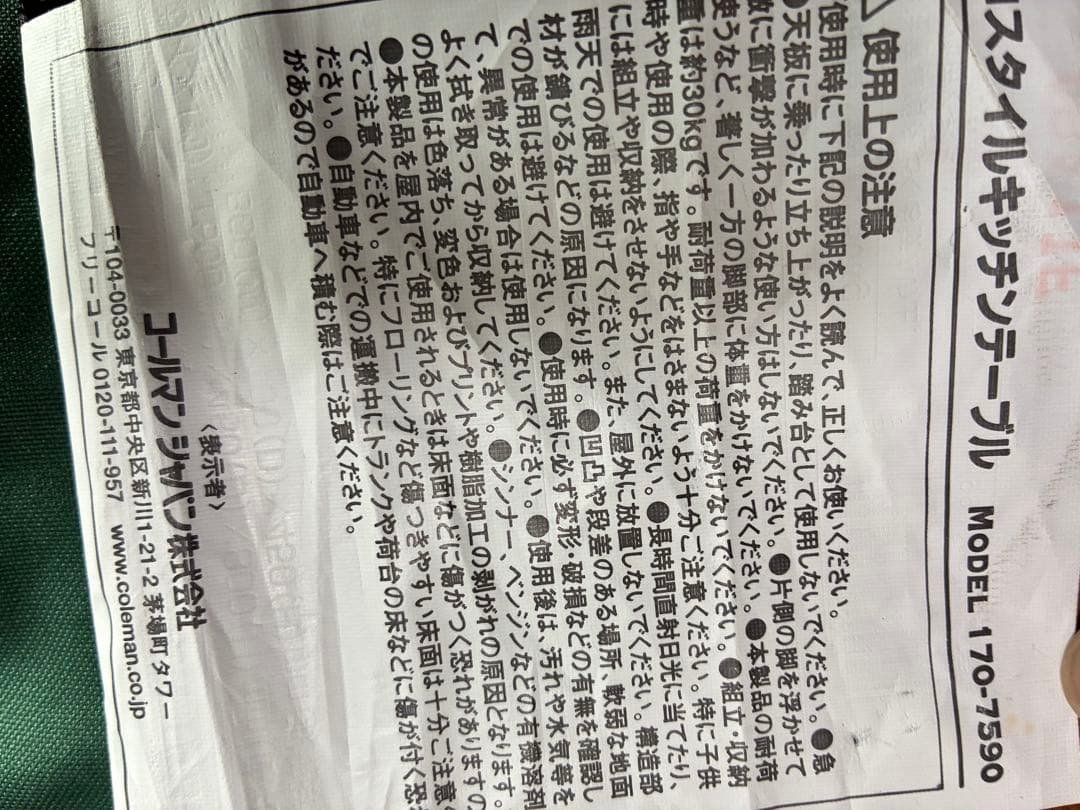 スタイルキッチンテーブル MODEL 170-7590
使用上の注意
使用時に下記の説明をよく読んで、正しくお使いください。
●天板に乗ったり立ち上がったり、踏み台として使用しないでください。●急
激に衝撃が加わるような使い方はしないでください。●片側の脚を浮かせて
使うなど、著しく一方の脚部に体重をかけないでください。●本製品の耐荷
重は約30kgです。耐荷重以上の荷重をかけないでください。●組立・収納
時や使用の際、指や手などをはさまないよう十分ご注意ください。特に子供
には組立や収納をさせないようにしてください。●長時間直射日光に当てたり、
雨天での使用は避けてください。また、屋外に放置しないでください。構造部
材が錆びるなどの原因になります。●凹凸や段差のある場所、軟弱な地面
での使用は避けてください。●使用時に必ず変形・破損などの有無を確認し
て、異常がある場合は使用しないでください。●使用後は、汚れや水気等を
よく拭き取ってから収納してください。●シンナー、ベンジンなどの有機溶剤
の使用は色落ち、変色およびプリントや樹脂加工の剥がれの原因となります。
●本製品を屋内でご使用されるときは床面などに傷がつく恐れがありますの
でご注意ください。特にフローリングなど傷つきやすい床面は十分ご注意く
ださい。●自動車などでの運搬中にトランクや荷台の床などに傷が付く恐
があるので自動車へ積む際はご注意ください。
〈表示者〉
コールマン ジャパン株式会社
〒104-0033 東京都中央区新川1-21-2 茅場町タワー
フリーコール 0120-111-957 www.coleman.co.jp